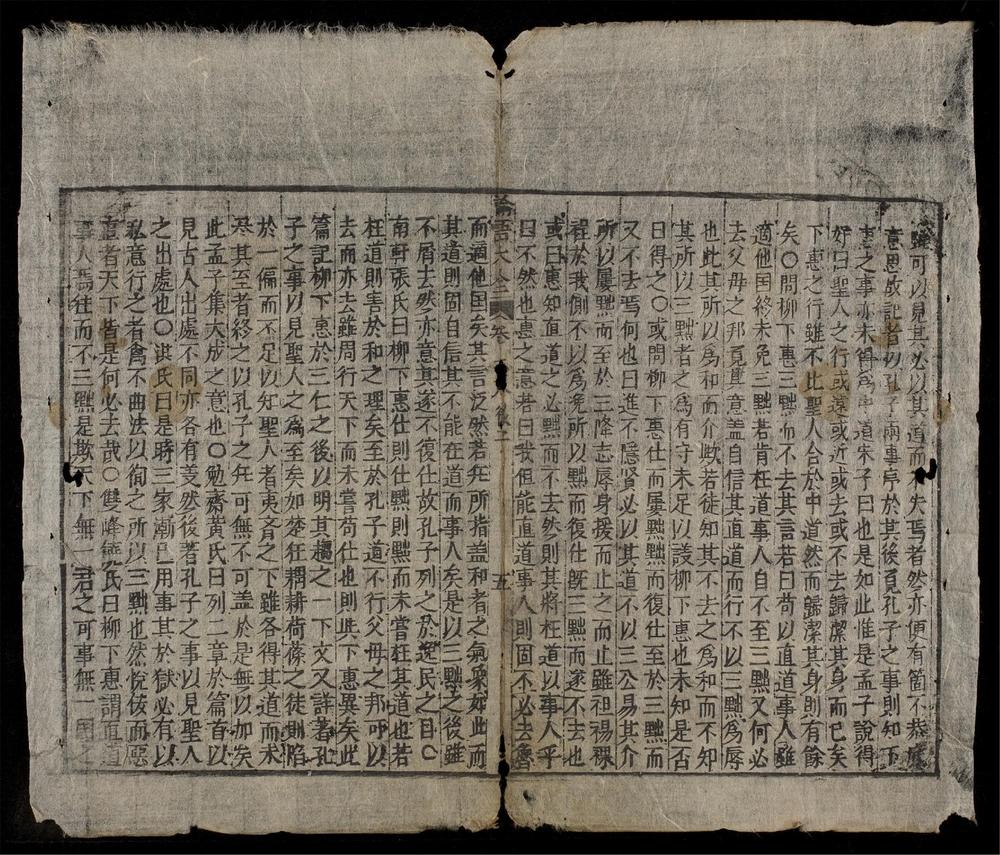 雖可以見其必以其道而不失焉者然亦便有箇不恭底
意思故記者以孔子兩事序於其後覔孔子之事則知下
惠之事亦未得爲中道朱子曰也是如此惟是孟子說得
好曰聖人之行或遠或近或去或不去歸潔其身而已矣
下惠之行雖不比聖人合於中道然而歸潔其身則有餘
矣○問柳下惠三黜而不去其言若曰苟以直道事人雖
適他国終未免三黜若肯枉道事人自不至三黜又何必
去父母之邦覔其意盖自信其直道而行不以三黜爲辱
也此其所以爲和而介歟若徒知其不去之爲和而不知
其所以三黜者之爲有守未足以議柳下惠也未知是否
曰得之○或問柳下惠仕而屢黜黜而復仕至於三黜而
又不去焉何也曰進不隱賢必以其道不以三公易其介
所以屢黜而至於三降志辱身援而止之而止雖袒裼裸
裎於我側不以爲凂所以三黜而復仕旣三黜而遂不去也
或曰惠知直道之必黜而不去然則其將枉道以事人乎
曰不然也惠之意若曰我但能直道事人則固不必去魯
論語大全 卷 五
而適他国矣其言泛然若無所指盖和者之氣象如此而
其道則固自信其不能在道而事人矣是以三黜之後雖
不屑去然亦意其遂不復仕故孔子列之於逸民之目○
南軒張氏曰柳下惠仕則仕黜則黜而未嘗枉其道也若
枉道則害於和之理矣至於孔子道不行父母之邦可以
去而亦去雖周行天下而未嘗苟仕也則與下惠異矣此
篇記柳下惠於三仁之後以明其趨之一下文又詳著孔
子之事以見聖人之爲至矣如楚狂耦耕荷蓧之徒則陷
於一偏而不足以知聖人者夷斉之下雖各得其道而未
尽其至者終之以孔子之無可無不可盖於是無以加矣
此孟子集大成之意也○勉齋黃氏曰列二章於篇首以
見古人出處不同亦各有義然後著孔子之事以見聖人
之出處也○洪氏曰是時三家漸已用事其於獄必有以
私意行之者禽不曲法以徇之所以三黜也然悅佞而惡
直者天下皆是何必去哉○雙峰饒氏曰柳下惠謂直道
事人焉往而不三黜是欺天下無一君之可事無一国之